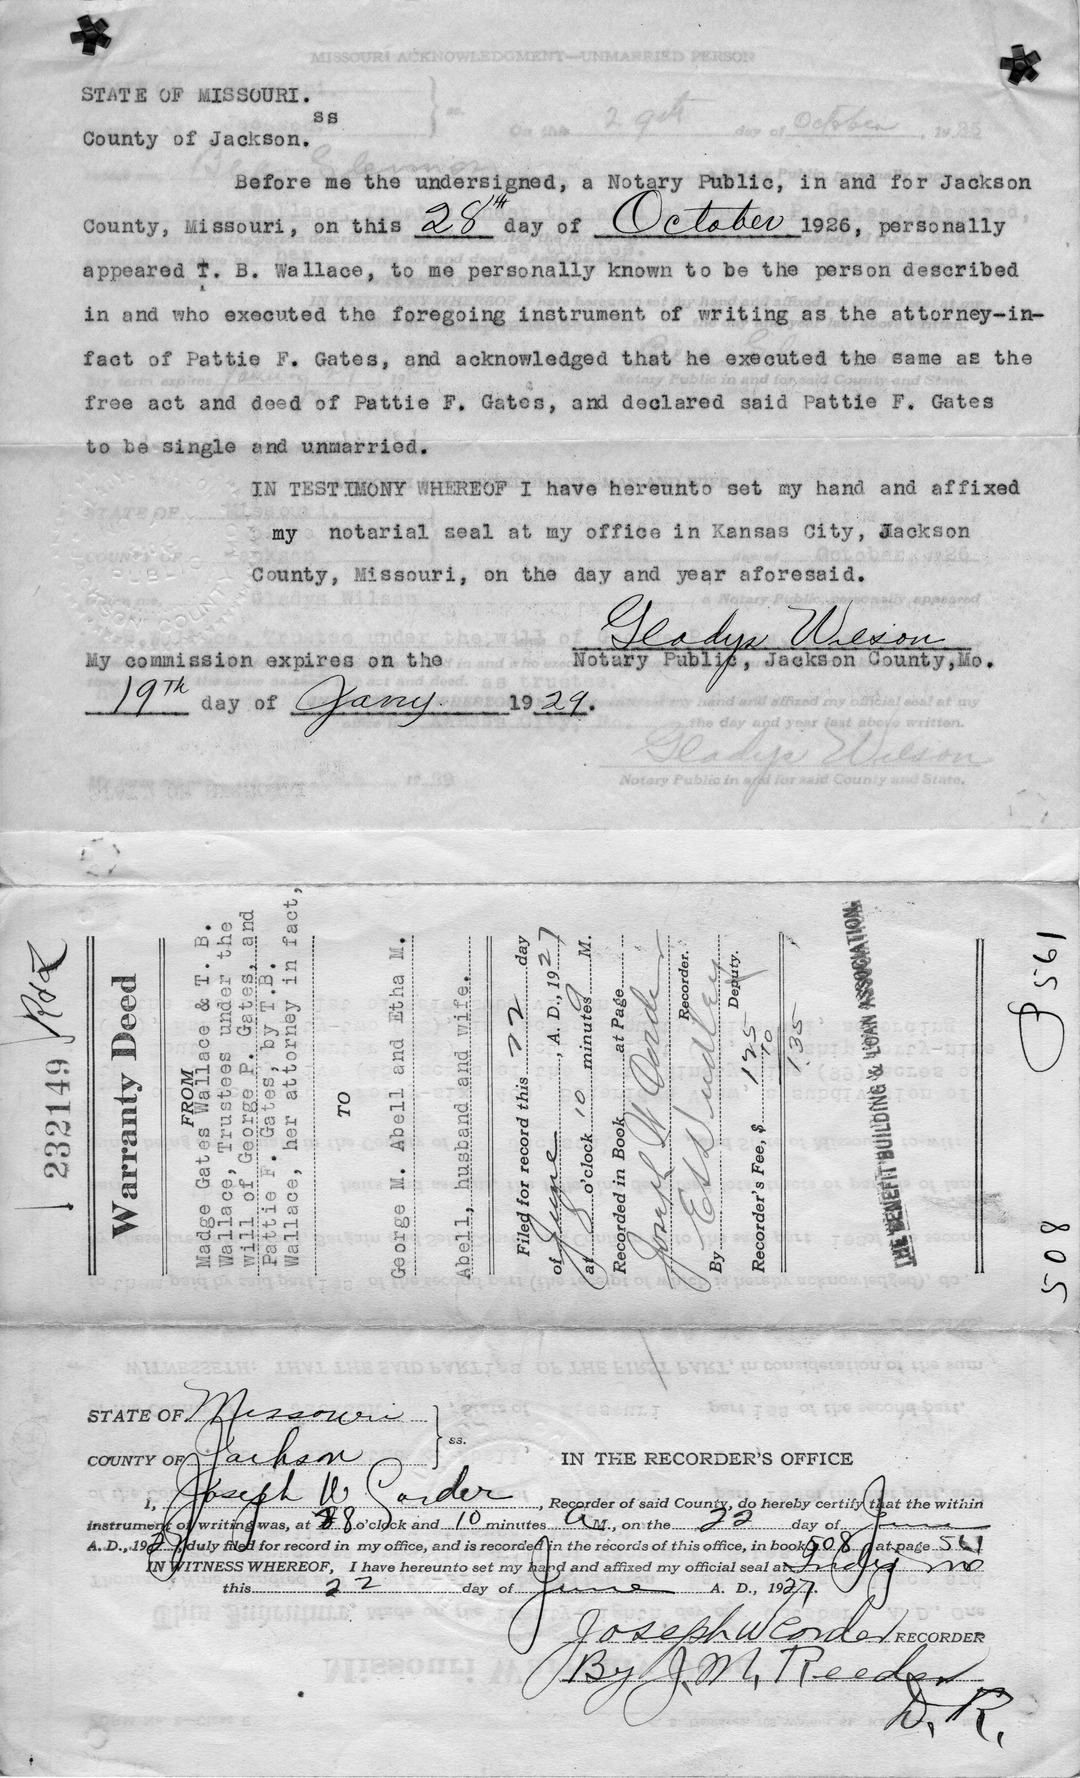 STATE OF MISSOURI.
ss
County of Jackson.
Before me the undersigned, a Notary Public, in and for Jackson
County, Missouri, on this 28th day of October 1926, personally
appeared T. B. Wallace, to me personally known to be the person described
in and who executed the foregoing instrument of writing as the attorney-in-
fact of Pattie F. Gates, and acknowledged that he executed the same as the
free act and deed of Pattie F. Gates, and declared said Pattie F. Gates
to be single and unmarried.
IN TESTIMONY WHEREOF I have hereunto set my hand and affixed
my notarial seal at my office in Kansas City, Jackson
County, Missouri, on the day and year aforesaid.
Gladys Wilson
My commission expires on the Notary Public, Jackson County, Mo.
19th day of Jany. 1929.
232149
Warranty Deed
FROM
Madge Gates Wallace & T. B.
Wallace, Trustees under the
will of George P. Gates, and
Pattie F. Gates, by T.B.
Wallace, her attorney in fact,
TO
George M. Abell and Etha M.
Abell, husband and wife.
Filed for record this 22 day
of June, A. D., 1927
at 8 o'clock 10 minutes A M.
Recorded in Book at Page
Joseph W Corder
Recorder.
By
Deputy.
Recorder's Fee, $ 125
10
135
THE BENEFIT BUILDING & LOAN ASSOCIATION.
508 P 561
STATE OF Missouri
ss.
COUNTY OF Jackson
IN THE RECORDER'S OFFICE
I, Joseph W Corder, Recorder of said County, do hereby certify that the within
instrument of writing was, at 8 o'clock and 10 minutes A M., on the 22 day of June
A. D., 1927, duly filed for record in my office, and is recorded in the records of this office, in book 508 at page 561
IN WITNESS WHEREOF, I have hereunto set my hand and affixed my official seal at Indep Mo
this 22 day of June A. D., 1927.
Joseph W Corder RECORDER
By J. M. Reeder
D. R.